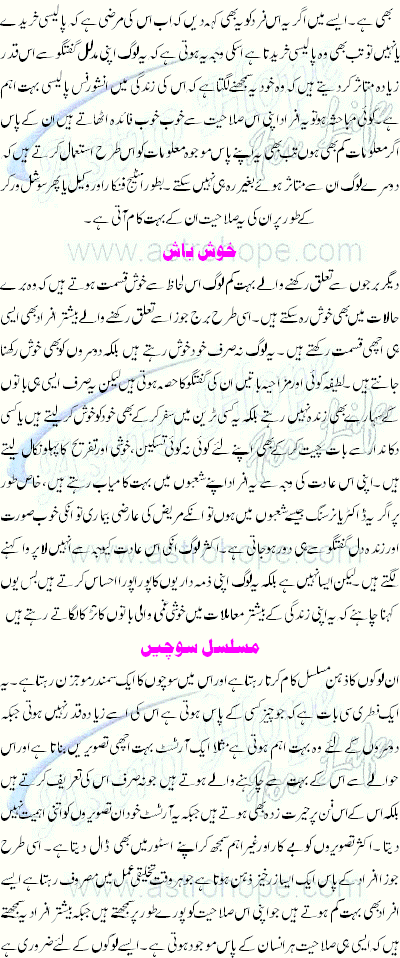 بھی ہے۔ ایسے میں اگر یہ اس فرد کو یہ بھی کہہ دیں کہ اب اس کی مرضی ہے کہ پالیسی خریدے
یا نہیں تو تب بھی وہ پالیسی خریدتا ہے اسکی وجہ یہ ہوتی ہے کہ یہ لوگ اپنی مدلل گفتگو سے اس قدر
زیادہ متاثر کر دیتے ہیں کہ وہ خود یہ سمجھنے لگتا ہے کہ اس کی زندگی میں انشورنس پالیسی بہت اہم
ہے۔ کوئی مباحثہ ہو تو یہ افراد اپنی اس صلاحیت سے خوب خوب فائدہ اٹھاتے ہیں ان کے پاس
اگر معلومات کم بھی ہوں تب بھی یہ اپنے پاس موجود معلومات کو اس طرح استعمال کرتے ہیں کہ
دوسرے لوگ ان سے متاثر ہوئے بغیر رہ ہی نہیں سکتے۔ بطور اسٹیج فنکار اور وکیل یا پھر سوشل ورکر
کے طور پر ان کی یہ صلاحیت ان کے بہت کام آتی ہے۔
www.astrohope.com
خوش باش
دیگر برجوں سے تعلق رکھنے والے بہت کم لوگ اس لحاظ سے خوش قسمت ہوتے ہیں کہ وہ برے
حالات میں بھی خوش رہ سکتے ہیں۔ اسی طرح برج جوزا سے تعلق رکھنے والے بیشتر افراد بھی ایسی
ہی اچھی قسمت رکھتے ہیں۔ یہ لوگ نہ صرف خود خوش رہتے ہیں بلکہ دوسروں کو بھی خوش رکھنا
جانتے ہیں۔ لطیفہ گوئی اور مزاحیہ باتیں ان کی گفتگو کا حصہ ہوتی ہیں لیکن یہ صرف ایسی ہی باتوں
کے سہارے بھی زندہ نہیں رہتے بلکہ یہ کسی ٹرین میں سفر کر کے بھی خود کو خوش کر لیتے ہیں یا کسی
دکاندار سے بات چیت کر کے بھی اپنے لئے کوئی نہ کوئی تسکین، خوشی اور تفریح کا پہلو نکال لیتے
ہیں۔ اپنی اس عادت کی وجہ سے یہ افراد اپنے شعبوں میں بہت کامیاب رہتے ہیں، خاص طور
پر اگر یہ ڈاکٹر یا نرسنگ جیسے شعبوں میں ہوں تو انکے مریض کی عارضی بیماری تو انکی خوب صورت
اور زندہ دل گفتگو سے ہی دور ہو جاتی ہے۔ اکثر لوگ انکی اس عادت کیوجہ سے انہیں لاپروا کہنے
لگتے ہیں۔ لیکن ایسا نہیں ہے بلکہ یہ لوگ اپنی ذمہ داریوں کا پورا پورا احساس کرتے ہیں بس یوں
کہنا چاہئے کہ یہ اپنی زندگی کے بیشتر معاملات میں خوشی غمی والی باتوں کا تڑکا لگاتے رہتے ہیں
مسلسل سوچیں
ان لوگوں کا ذہن مسلسل کام کرتا رہتا ہے اور اس میں سوچوں کا ایک سمندر موجزن رہتا ہے۔ یہ
ایک فطری سی بات ہے کہ جو چیز کسی کے پاس ہوتی ہے اس کی اسے زیادہ قدر نہیں ہوتی جبکہ
دوسروں کے لئے وہ بہت اہم ہوتی ہے مثلا ایک آرٹسٹ بہت اچھی تصویریں بناتا ہے اور اس
حوالے سے اس کے بہت سے چاہنے والے ہوتے ہیں جو نہ صرف اس کی تعریف کرتے ہیں
بلکہ اس کے فن پر حیرت زدہ بھی ہوتے ہیں جبکہ یہ آرٹسٹ خود ان تصویروں کو اتنی اہمیت نہیں
دیتا۔ اکثر تصویروں کو بے کار اور غیر اہم سمجھ کر اپنے اسٹور میں بھی ڈال دیتا ہے۔ اسی طرح
جوزا افراد کے پاس ایک ایسا زرخیز ذہن ہوتا ہے جو ہر وقت تخلیقی عمل میں مصروف رہتا ہے ایسے
افراد بھی بہت کم ہوتے ہیں جو اپنی اس صلاحیت کو پورے طور پر سمجھتے ہیں جبکہ بیشتر افراد یہ سمجھتے
ہیں کہ ایسی ہی صلاحیت ہر انسان کے پاس موجود ہوتی ہے۔ ایسے لوگوں کے لئے ضروری ہے